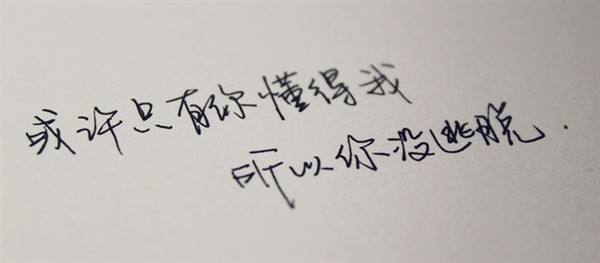 或许只有你懂得我
所以你没逃脱.